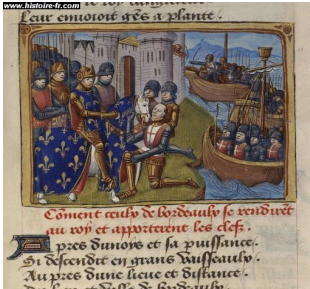 www.histoire-fr.com
Leur enuoioit gẽs a plante.
Cõment ceulx de bordeaulx se rendirẽt
au roy et apporterent les clefz.
Apres dunoys et sa puissance.
Si descendit en grans vaisseaulx.
Au pres dune lieue et distance.